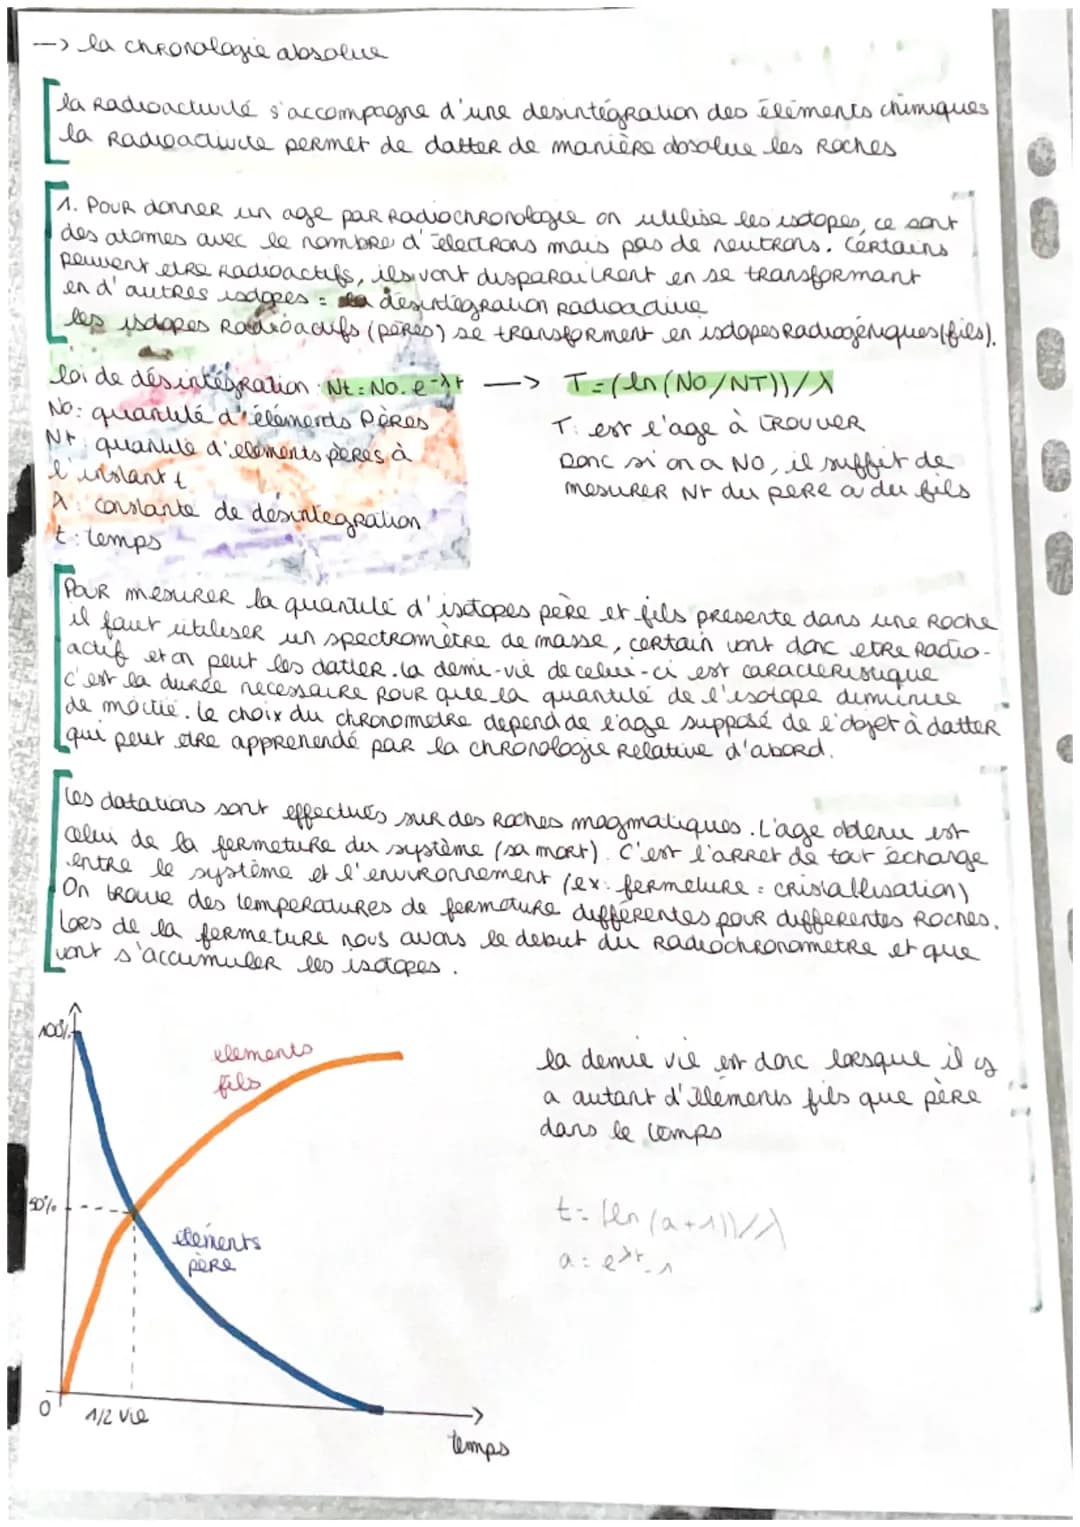 --> la chronologie absolue
la Radioactivité s'accompagne d'une desintégration des éléments chimiques
la Radioactivite permet de datter de manière absolue les Roches
1. Pour donner un age par Radiochronologie on utilise les isotopes, ce sont
des atomes avec le nombre d'électrons mais pas de neutrons. Certains
peuvent etre Radioactifs, ils vont disparaitrent en se transformant
en d'autres isotopes = la désintégration radioactive
les isotopes Radioactifs (pères) se transforment en isotopes Radiogéniques (fils).
loi de désintégration : Nt = N0. e-λt --> T = (ln (N0/NT))/λ
N0: quantité d'éléments Pères
Nt: quantité d'elements pères à
l'instant t
λ: constante de désintegration
t: temps
T: est l'age à trouver
Donc si on a N0, il suffit de
mesurer Nt du pere a du fils
Pour mesurer la quantité d'isotopes père et fils presente dans une Roche
il faut utiliser un spectromètre de masse, certain vont donc etre Radio-
actif et on peut les datter. la demi-vie de celui-ci est caracteristique
c'est la durée necessaire pour que la quantité de l'isotope diminue
de moitié. le choix du chronometre depend de l'age supposé de l'objet à datter
qui peut etre apprenendé par la chronologie Relative d'abord.
les datations sont effectués sur des Roches magmatiques. L'age obtenu est
celui de la fermeture du système (sa mort). C'est l'arret de tout échange
entre le système et l'environnement (ex: fermeture = cristallisation)
On trouve des temperatures de fermeture différentes pour differentes Roches.
Lors de la fermeture nous avons le debut du Radiochronometre et que
vont s'accumuler les isotopes.
100%
elements
fils
50%
éléments
père
0
1/2 vie
temps
la demie vie est donc lorsque il y
a autant d'éléments fils que père
dans le temps
t = (ln (a+1))/λ
a = eλt-1